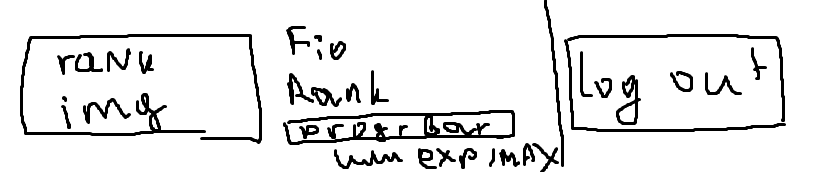 rank
img
Fio
Rank
progr bar
exp/MAX
Log out